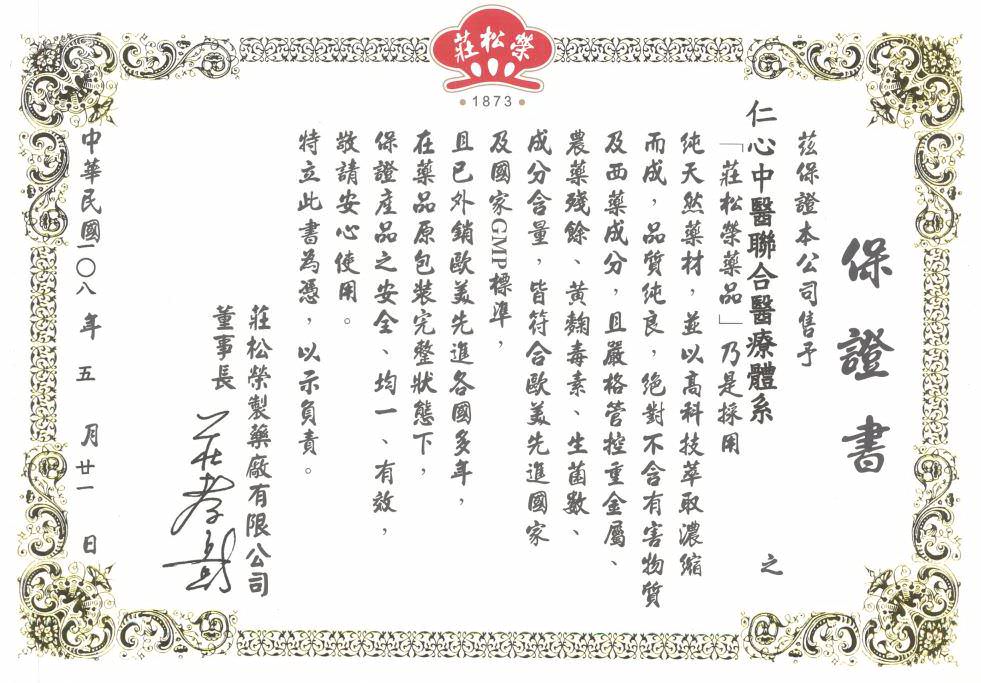 莊松榮
1873
保證書
茲保證本公司售予
仁心中醫聯合醫療體系 之
「莊松榮藥品」乃是採用
純天然藥材，並以高科技萃取濃縮
而成，品質純良，絕對不含有害物質
及西藥成分，且嚴格管控重金屬、
農藥殘餘、黃麴毒素、生菌數、
成分含量，皆符合歐美先進國家
及國家GMP標準，
且已外銷歐美先進各國多年，
在藥品原包裝完整狀態下，
保證產品之安全、均一、有效，
敬請安心使用。
特立此書為憑，以示負責。
莊松榮製藥廠有限公司
董事長
中華民國一〇八年五月廿一日